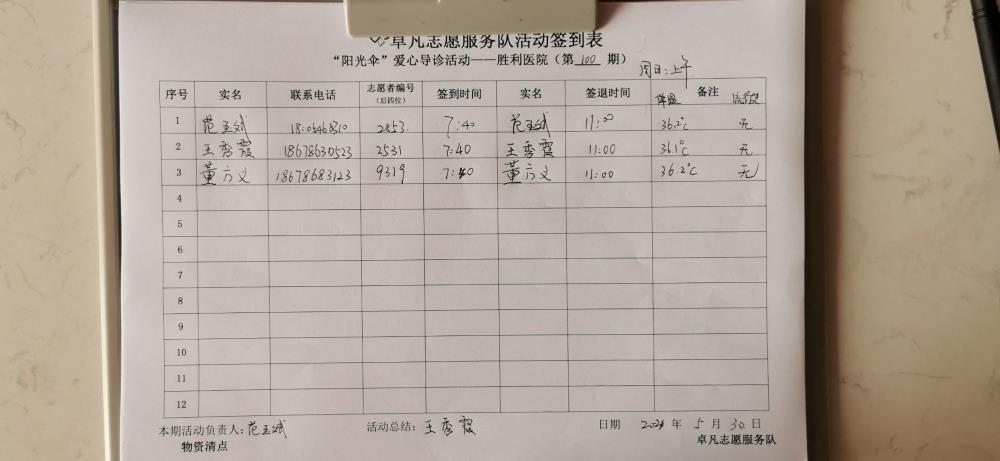 卓凡志愿服务队活动签到表
“阳光伞”爱心导诊活动——胜利医院（第 100 期）
周日:上午
序号 实名 联系电话 志愿者编号（后四位） 签到时间 实名 签退时间 体温 备注
1 范玉斌 2853 7:40 范玉斌 11:00 36.2℃ 无
2 王秀霞 18678630523 2531 7:40 王秀霞 11:00 36.1℃ 无
3 董方义 18678683123 9319 7:40 董方义 11:00 36.2℃ 无
4
5
6
7
8
9
10
11
12
本期活动负责人:范玉斌 活动总结:王秀霞 日期 2021 年 5 月 30 日
物资清点 卓凡志愿服务队